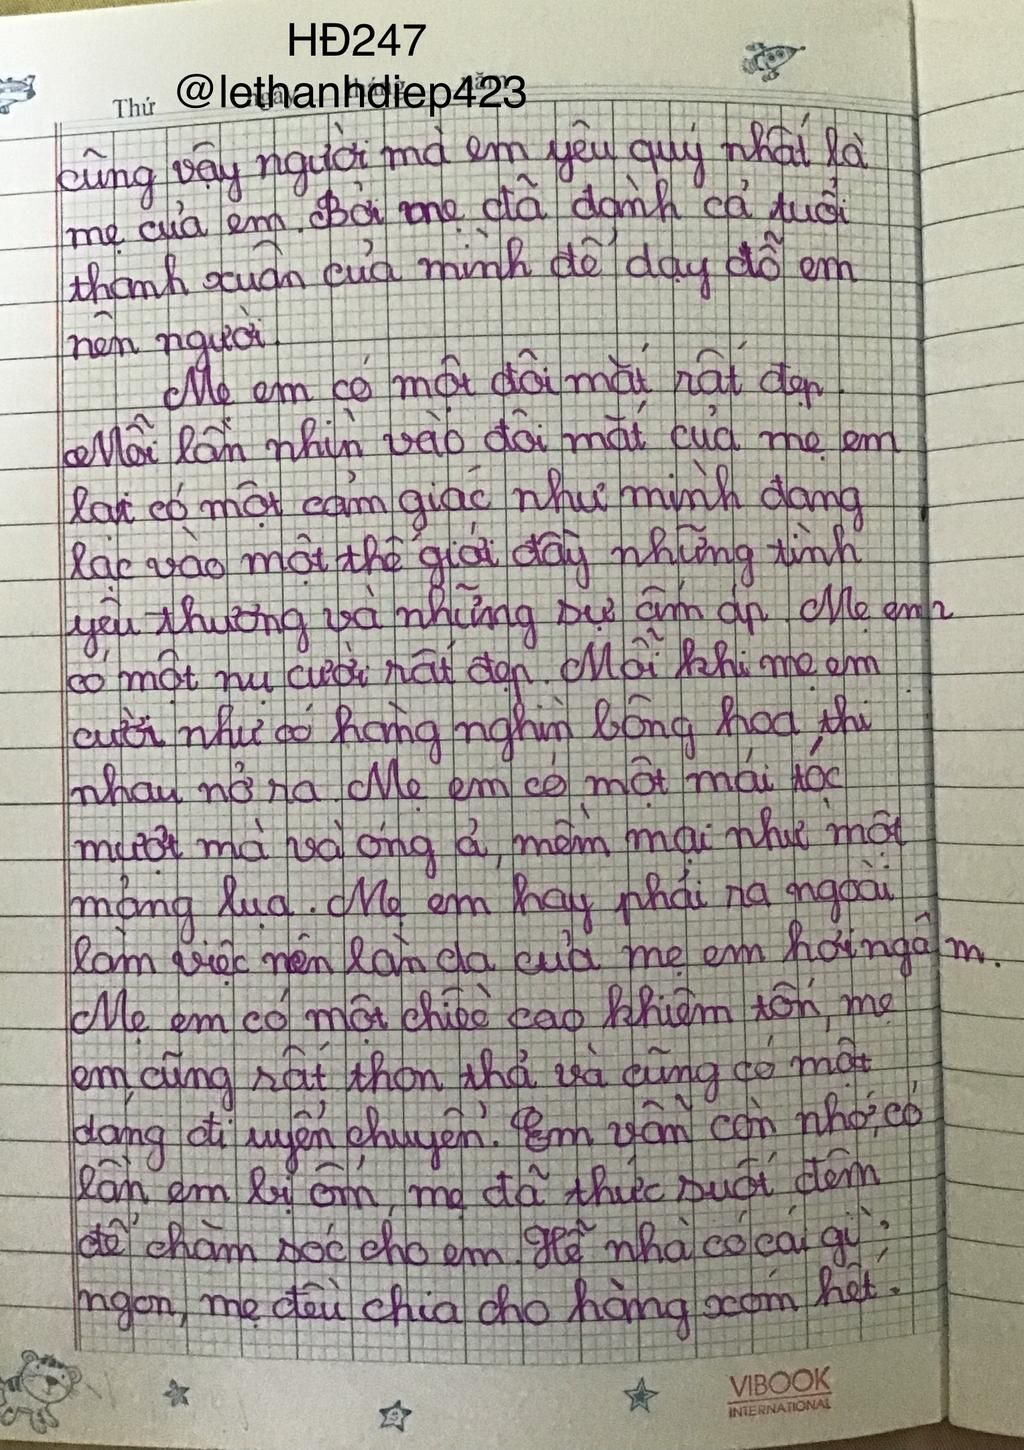 HĐ247
@lethanhdiep423
Thứ
cũng vậy người mà em yêu quý nhất là
mẹ của em. Bởi mẹ đã dành cả tuổi
thanh xuân của mình để dạy dỗ em
nên người.
Mẹ em có một đôi mắt rất đẹp.
Mỗi lần nhìn vào đôi mắt của mẹ em
lại có một cảm giác như mình đang
lạc vào một thế giới đầy những tình
yêu thương và những sự ấm áp. Mẹ em
có một nụ cười rất đẹp. Mỗi khi mẹ em
cười như có hàng nghìn bông hoa thi
nhau nở ra. Mẹ em có một mái tóc
mượt mà và óng ả, mềm mại như một
mảng lụa. Mẹ em hay phải ra ngoài
làm việc nên làn da của mẹ em hơi ngăm.
Mẹ em có một chiều cao khiêm tốn, mẹ
em cũng rất thon thả và cũng có một
dáng đi uyển chuyển. Em vẫn còn nhớ, có
lần em bị ốm, mẹ đã thức suốt đêm
để chăm sóc cho em. Hễ nhà có cái gì
ngon, mẹ đều chia cho hàng xóm hết.
VIBOOK
INTERNATIONAL